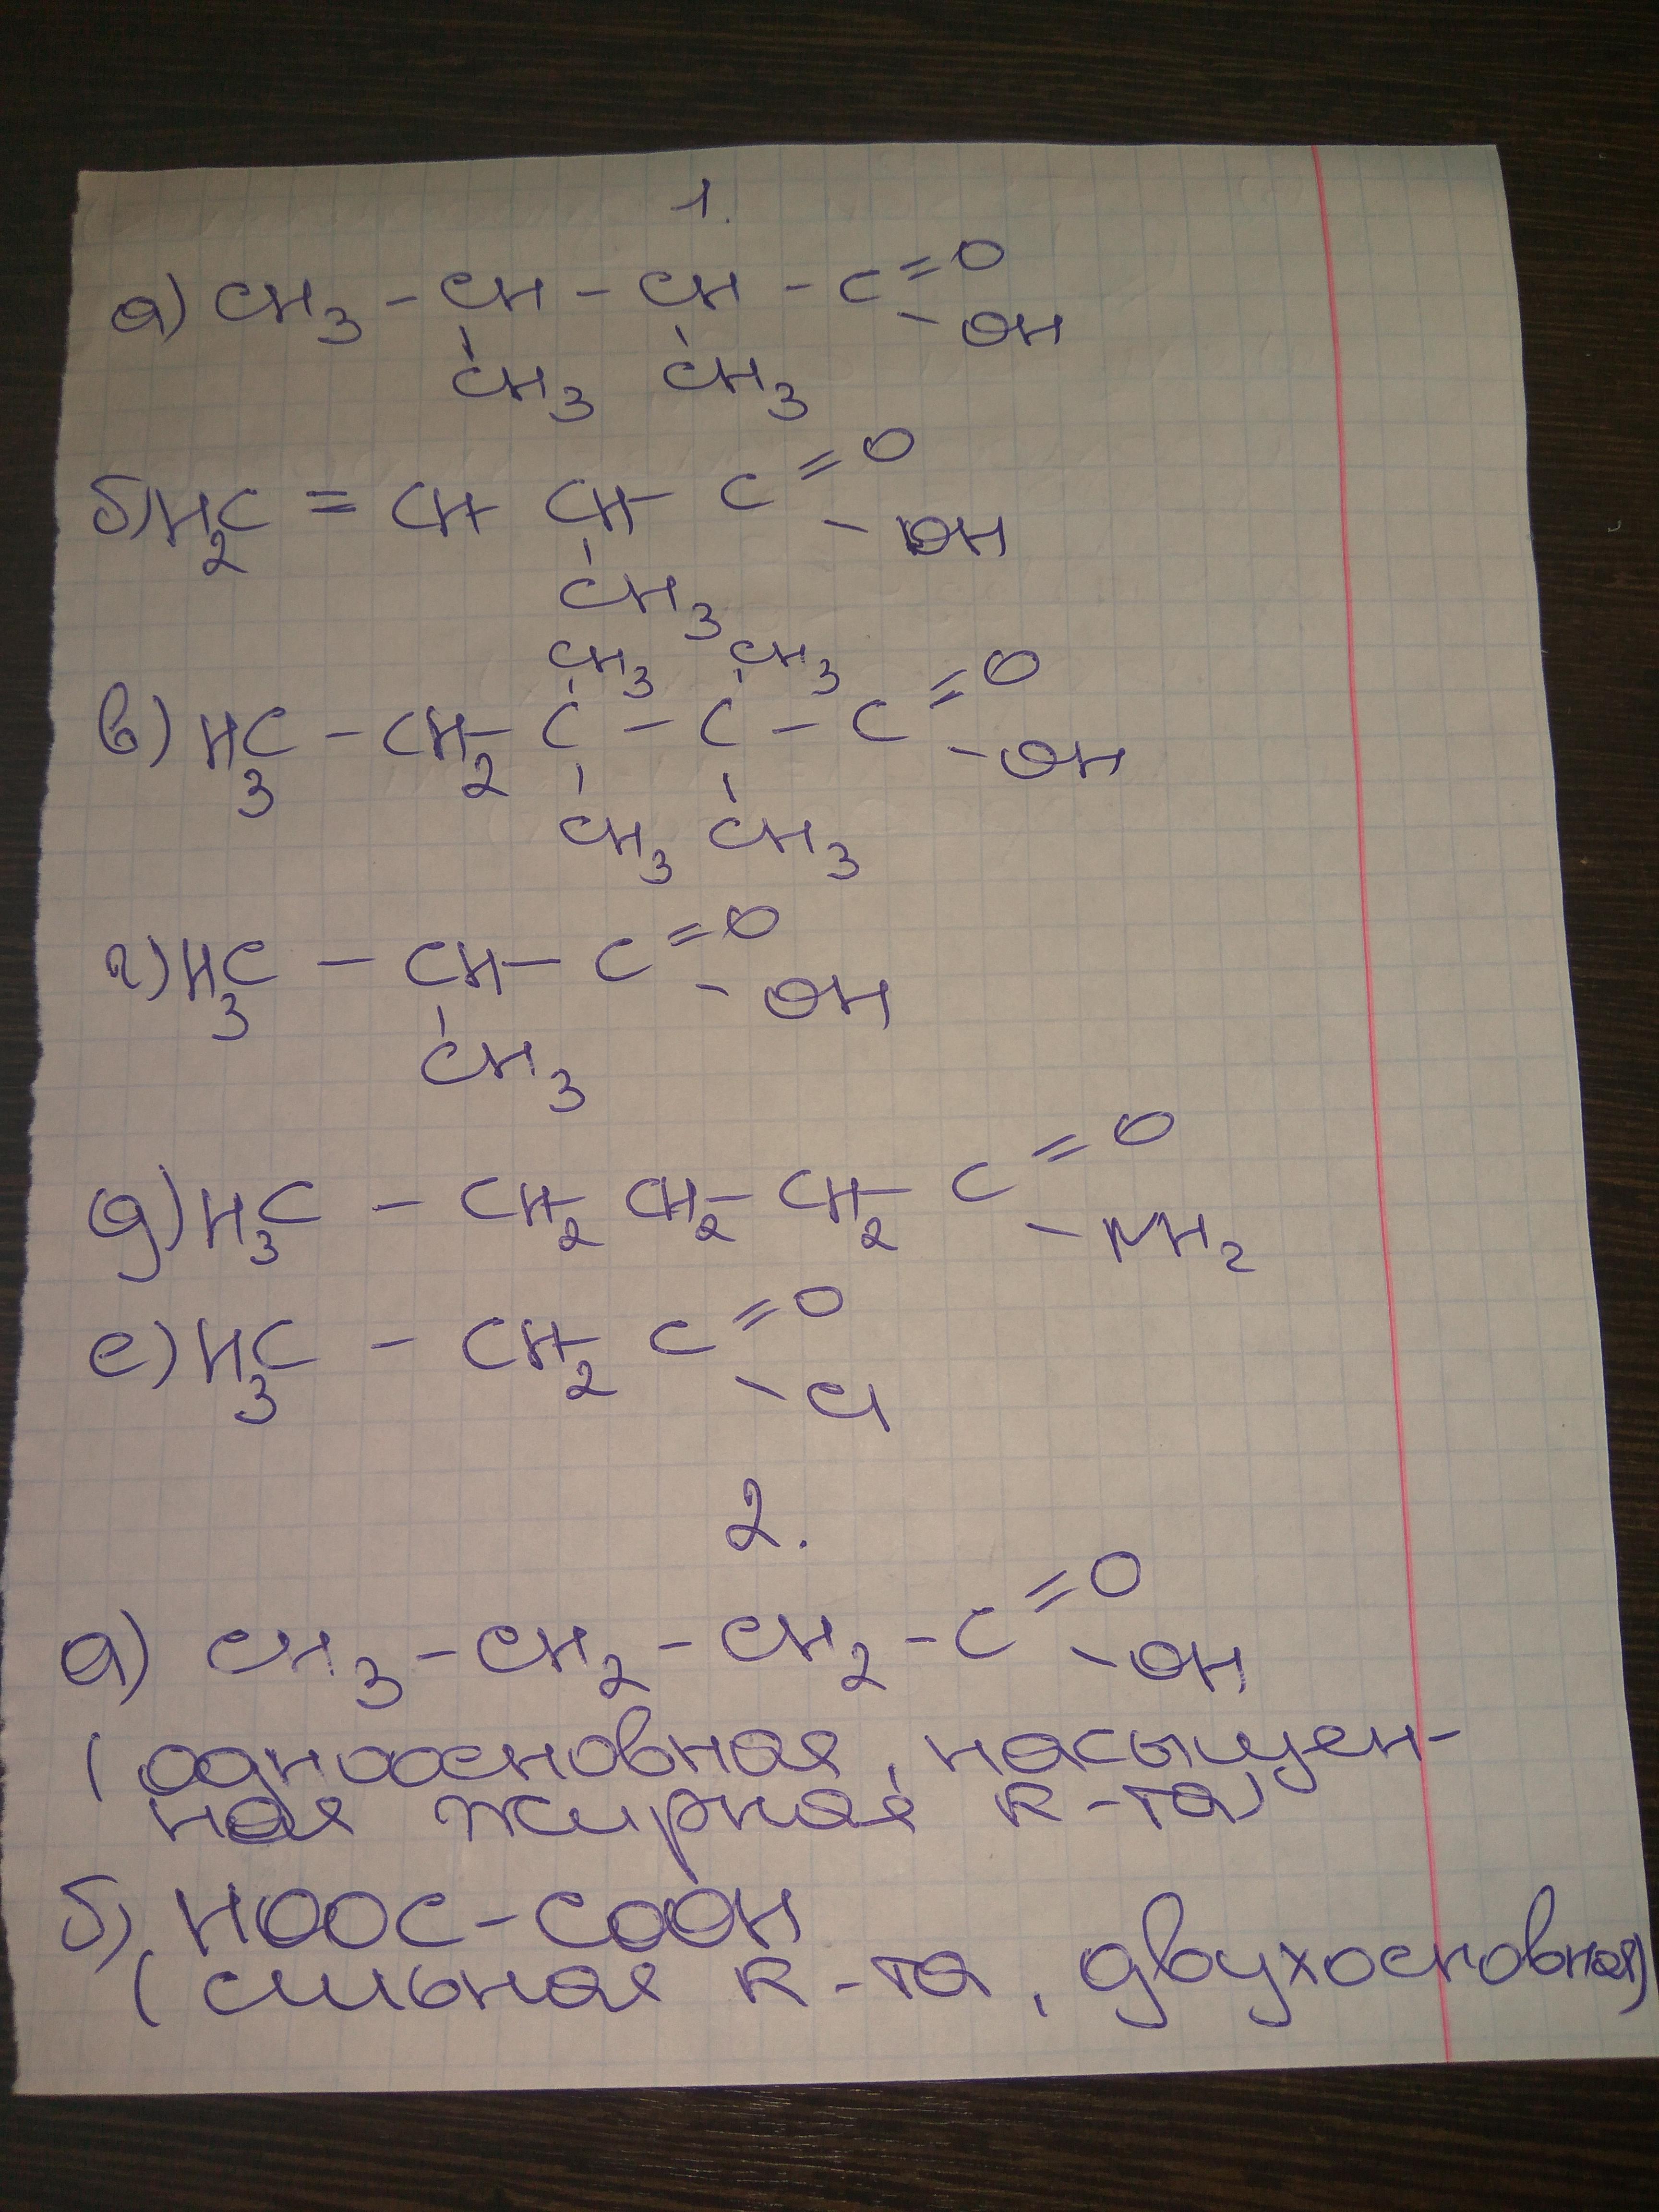 1.
а) CH3 - CH - CH - C =O
- OH
CH3 CH3
б) H2C = CH- CH- C =O
- OH
CH3
CH3 CH3
в) H3C - CH2- C - C - C =O
- OH
CH3 CH3
г) H3C - CH- C =O
- OH
CH3
д) H3C - CH2- CH2- CH2- C =O
- NH2
е) H3C - CH2- C =O
- Cl
2.
а) CH3 - CH2 - CH2 - C =O
- OH
(одноосновная, насыщен-
ная жирная к-та)
б) HOOC - COOH
(сильная к-та, двухосновная)